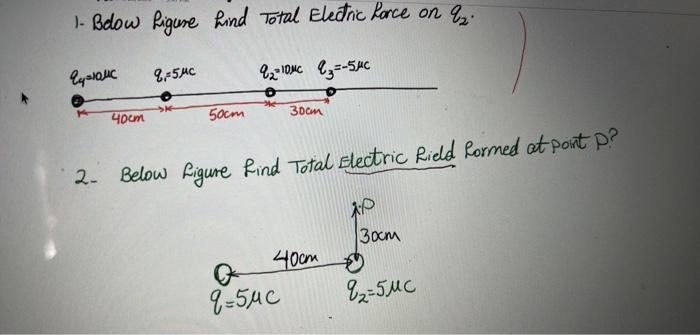 1- Below figure find Total Electric force on q₂.
q₄=10μC q₁=5μC q₂=10μC q₃=-5μC
40cm 50cm 30cm
2- Below figure find Total Electric field formed at point p?
P
30cm
40cm
q=5μC q₂=5μC